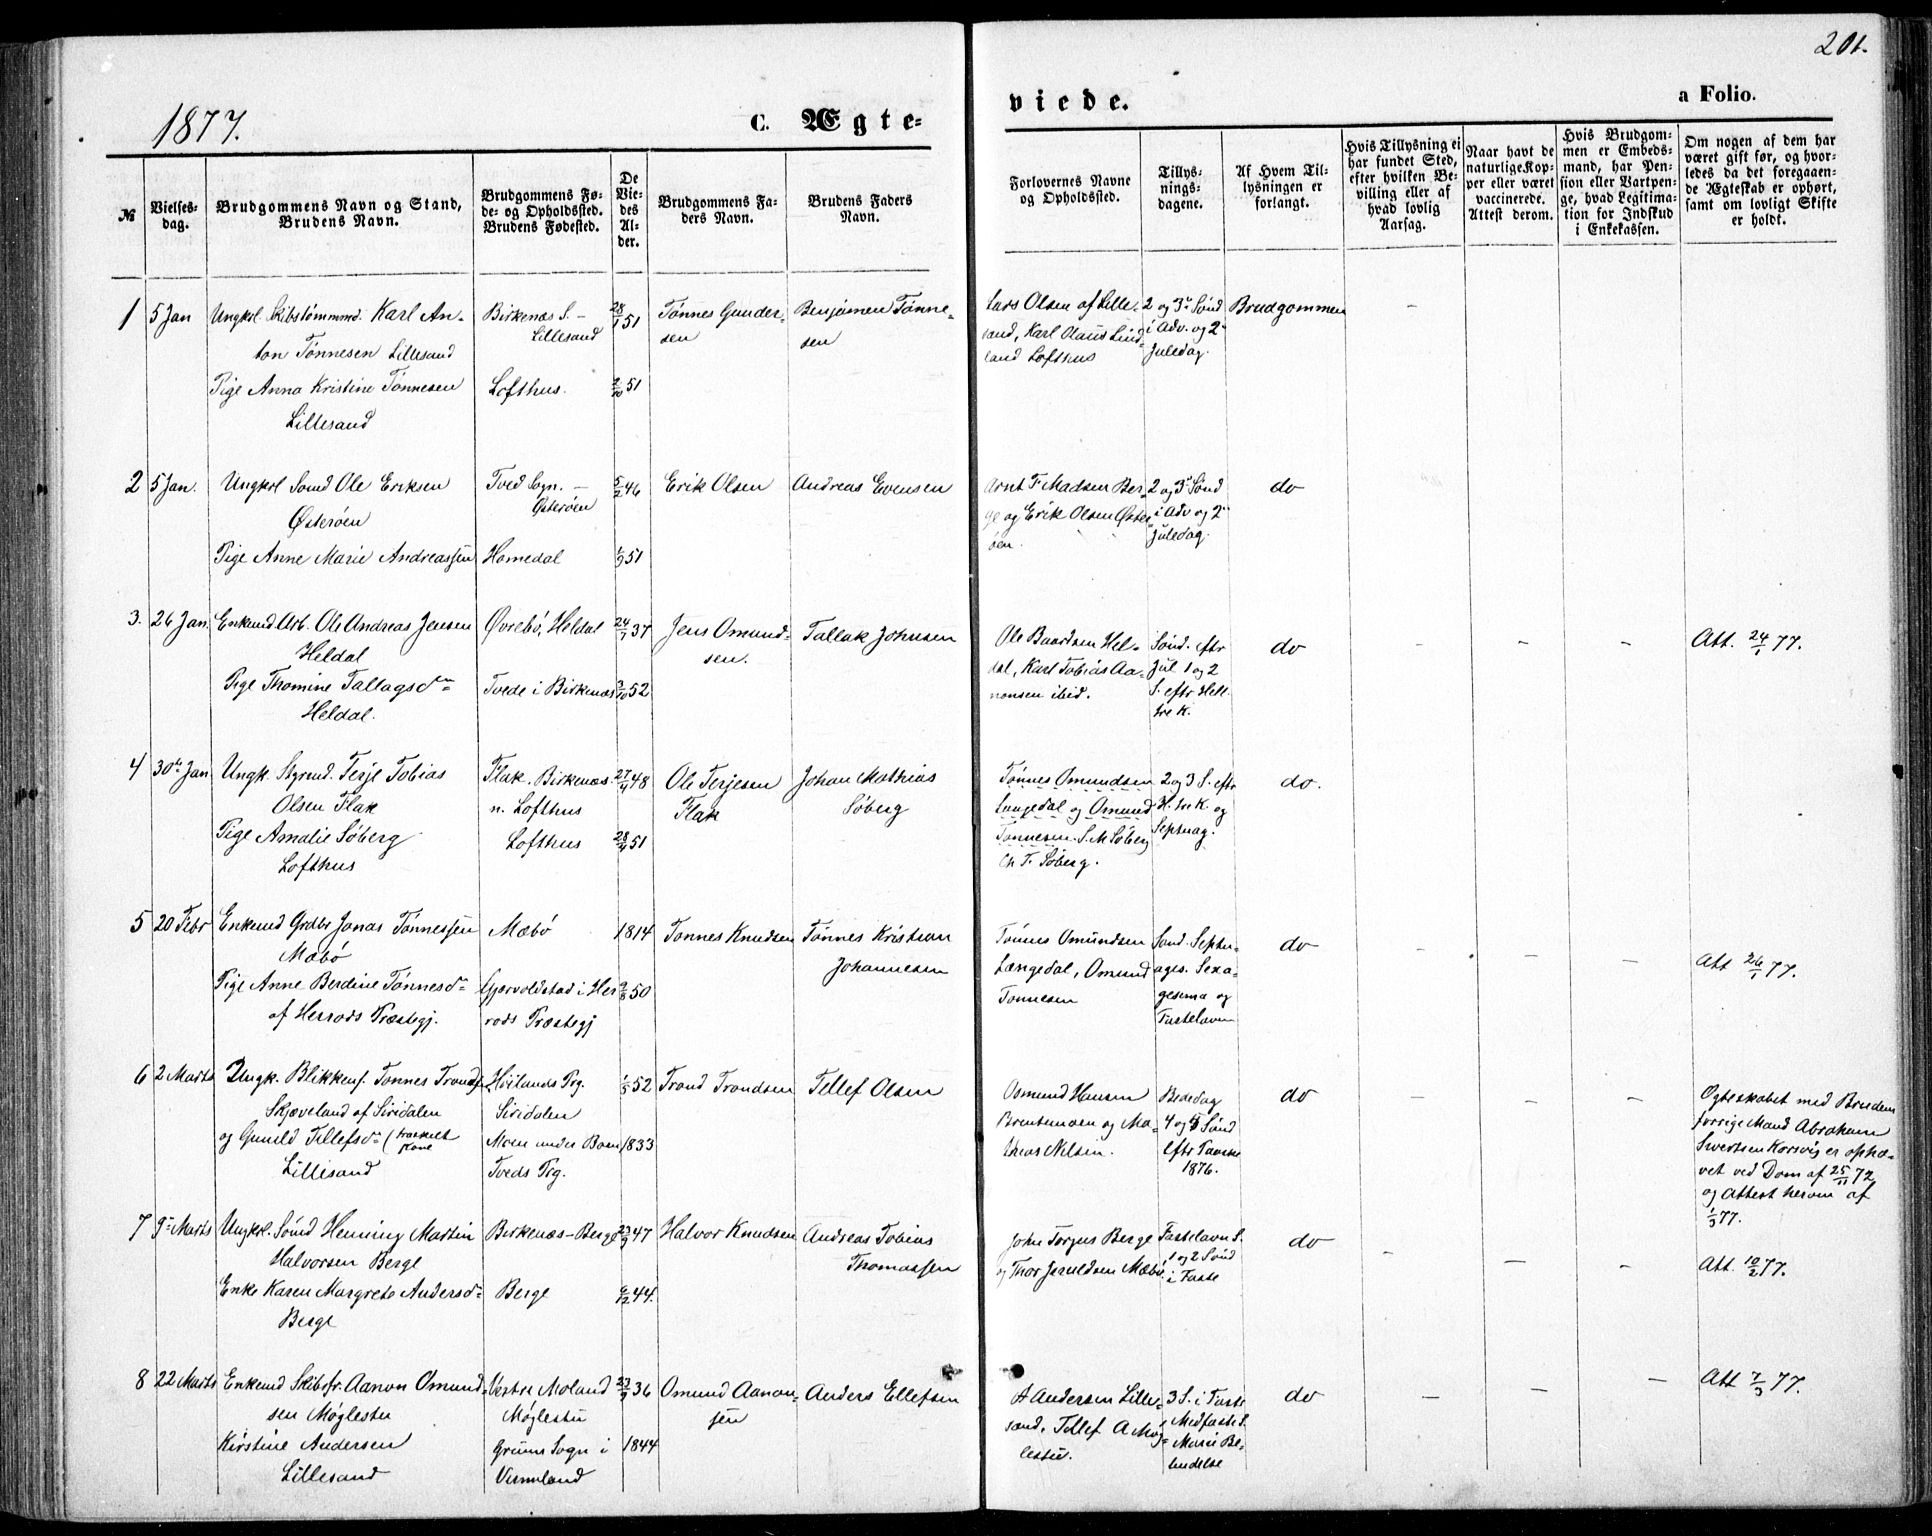 201.
1877.
C. Ægte-
viede.
a Folio.
№
Vielses-
dag.
Brudgommens Navn og Stand,
Brudens Navn.
Brudgommens Fø-
de- og Opholdssted.
Brudens Fødested.
De
Vie-
des
Al-
der.
Brudgommens Fa-
ders Navn.
Brudens Faders
Navn.
Forlovernes Navne
og Opholdssted.
Tillys-
nings-
dagene.
Af Hvem Til-
lysningen er
forlangt.
Hvis Tillysning ei
har fundet Sted,
efter hvilken Be-
villing eller af
hvad lovlig
Aarsag.
Naar havt de
naturlige Kop-
per eller været
vaccinerede.
Attest derom.
Hvis Brudgom-
men er Embeds-
mand, har Pen-
sion eller Vartpen-
ge, hvad Legitima-
tion for Indskud
i Enkekassen.
Om nogen af dem har
været gift før, og hvor-
ledes da det foregaaen-
de Ægteskab er ophørt,
samt om lovligt Skifte
er holdt.
1
5 Jan
Ungkrl. Skibstømmmd. Karl An-
ton Tønnesen Lillesand
Pige Anna Kristine Tønnesen
Lillesand
Birkenæs S. –
Lillesand
Lofthus.
28/1 51
2/10 51
Tønnes Gunder-
sen
Benjamen Tønne-
sen
Lars Olsen af Lille-
sand, Karl Olaus Lind-
land Lofthus
2 og 3die Sønd
i Adv. og 2den
Juledag.
Brudgommen
–
2
5 Jan.
Ungkrl Sømd Ole Eriksen
Østerøen
Pige Anne Marie Andreassen
Tved Sogn. –
Østerøen
Homedal
5/2 46
1/9 51
Erik Olsen
Andreas Evensen
Arnt F Madsen Ber-
ge og Erik Olsen Øster-
øen.
2 og 3die Sønd
i Adv og 2den
Juledag.
do
3.
26 Jan.
Enkemd Arb. Ole Andreas Jensen
Heldal
Pige Thomine Tallagsdtr
Heldal.
Øvrebø, Heldal
Tvede i Birkenæs
24/7 37
3/10 52
Jens Omund-
sen.
Tallak Johnsen
Ole Baardsen Hel-
dal, Karl Tobias Aa-
nonsen ibid.
Sønd. eftr
Jul 1 og 2
S. eftr Hell
tre K.
do
– – –
Att. 24/1 77.
4
30te Jan
Ungk. Styrmd. Terje Tobias
Olsen Flak
Pige Amalie Søberg
Lofthus
Flak. Birkenæs.
n. Lofthus
Lofthus
27/4 48
28/4 51
Ole Terjesen
Flak
Johan Mathias
Søberg
Tønnes Omundsen
Langedal og Omund
Tønnesen. S. M Søberg
Ch F. Søberg.
2 og 3 S. eftr
H. tre K. og
Septuag.
do.
5
20 Febr
Enkemd Grdbr Jonas Tønnessen
Mæbø
Pige Anne Berdine Tønnesdtr
af Herrods Præstegj.
Mæbø
Gjervoldstad i Her-
rods Præstegj
1814
9/8 50
Tønnes Knudsen
Tønnes Kristian
Johannesen
Tønnes Omundsen
Længedal, Omund
Tønnesen
Sønd. Septu-
ages. Sexa-
gesima og
Fastelavn
do
– – –
Att 26/1 77.
6
2 Marts
Ungk. Blikkensl. Tønnes Trondsen
Skjæveland af Siridalen
og Gunild Tellefsdtr (fraskilt
Kone
Lillesand
Hvilands Prg.
Siridalen
Moen under Boen,
Tveds Prg.
1/5 52
1833
Trond Trondsen
Tellef Olsen
Osmund Hansen
Brentemoen og Ma-
theas Nilsen.
Bededag
4 og 5 Sønd
eftr Paaske
1876.
do
– – –
Ægteskabet med Brudens
forrige Mand Abraham
Swertsen Korsvig er ophæ-
vet ved Dom af 25/11 72
og Attest herom af
1/3 77.
7
9de Marts
Ungkrl. Sømd Henning Martin
Halvorsen Berge
Enke Karen Margrete Andersdtr
Berge
Birkenæs–Berge
Berge
23/9 47
9/12 44.
Halvor Knudsen
Andreas Tobias
Thomassen
John Torgus Berge
og Thor Jeruldsen Mæbø.
Fastelavn S.
1 og 2 Sønd
i Faste
do
– – –
Att. 10/2 77.
8
22 Marts
Enkemd Skibsfr. Aanon Omund-
sen Møglestu
Kirstine Andersen
Lillesand
Vestre Moland
Møglestu
Grums Sogn i
Vermland
23/9 36
1844
Omund Aanon-
sen
Anders Ellefsen
A Andersen Lille-
sand, Tellef A Møg-
lestu.
3 S. i Faste
Midfaste S.
Mariæ Be-
budelse
do
– – –
Att 7/3 77.